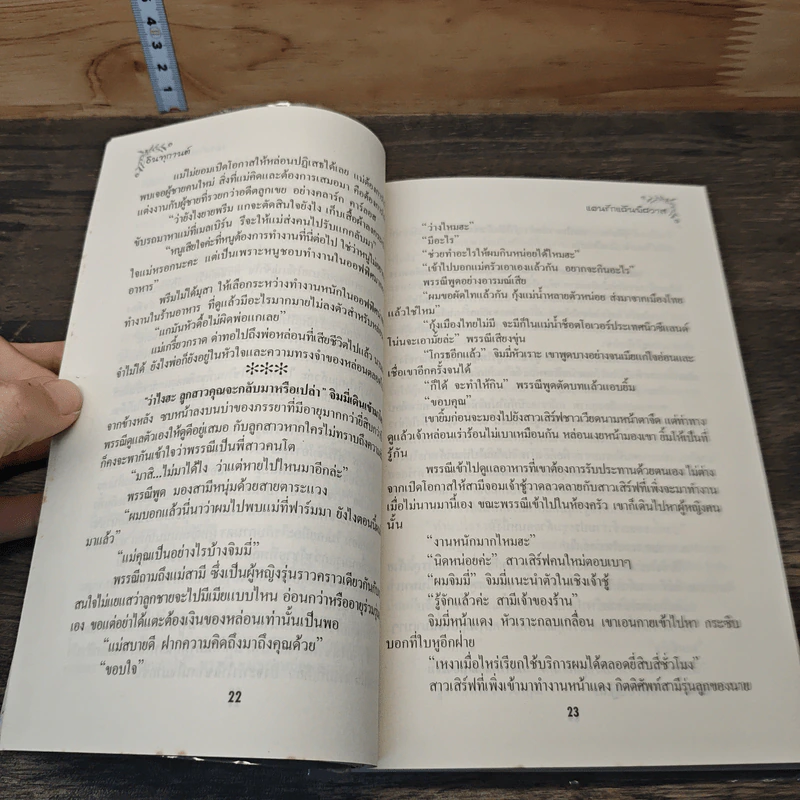 5 4 3 2 1
แม่ไม่ยอมเปิดโอกาสให้หล่อนปฏิเสธได้เลย
พบเจอผู้ชายคนใหม่ สิ่งที่แม่คิดและต้องการเสมอมา คือ
แต่งงานกับผู้ชายที่รวยกว่าอดีตลูกเขย อย่างคลาร์ก คาร์ลอส
“ว่ายังไงยายพรีม แกจะตัดสินใจยังไง เก็บเสื้อผ้า
ขับรถมาหาแม่ที่เมลเบิร์น รึจะให้แม่ส่งคนไปรับแกกลับมา”
“หนูเสียใจค่ะที่หนูต้องการทำงานที่นี่ต่อไป ใช่ว่าหนูไม่
ใจแม่หรอกนะคะ แต่เป็นเพราะหนูชอบทำงานในออฟฟิศ
อาหาร”
พรีมไม่ได้มุสา ให้เลือกระหว่างทำงานหนักในออฟฟิศ
ทำงานในร้านอาหาร ที่ดูแล้วมีอะไรมากมายไม่ลงตัวสำหรับ
“แกมันหัวดื้อไม่ผิดพ่อแกเลย”
แม่เกรี้ยวกราด ด่าทอไปถึงพ่อหล่อนที่เสียชีวิตไปแล้ว
จำไม่ได้ ยังไงพ่อก็ยังอยู่ในหัวใจและความทรงจำของหล่อน
***
“ว่าไงฮะ ลูกสาวคุณจะกลับมาหรือเปล่า” จิมมี่เดินเข้า
จากข้างหลัง ซบหน้าลงบนบ่าของภรรยาที่มีอายุมากกว่ายี่สิบ
พรรณีดูแลตัวเองให้ดูดีอยู่เสมอ กับลูกสาวหากใครไม่ทราบถึงความ
ก็คงจะพากันเข้าใจว่าพรรณีเป็นพี่สาวคนโต
“มาสิ...ไม่มาได้ไง ว่าแต่หายไปไหนมาอีกล่ะ”
พรรณีพูด มองสามีหนุ่มด้วยสายตาระแวง
“ผมบอกแล้วนี่นาว่าผมไปพบแม่ที่ฟาร์มมา ยังไงตอนนี้
มาแล้ว”
“แม่คุณเป็นอย่างไรบ้างจิมมี่”
พรรณีถามถึงแม่สามี ซึ่งเป็นผู้หญิงรุ่นราวคราวเดียวกัน
สนใจไม่แยแสว่าลูกชายจะไปมีเมียแบบไหน อ่อนกว่าหรืออายุ
เอง ขอแต่อย่าได้แตะต้องเงินของหล่อนเท่านั้นเป็นพอ
“แม่สบายดี ฝากความคิดถึงมาถึงคุณด้วย”
“ขอบใจ”
22
“ว่างไหมฮะ”
“มีอะไร”
“ช่วยทำอะไรให้ผมกินหน่อยได้ไหมฮะ”
“เข้าไปบอกแม่ครัวเอาเองแล้วกัน อยากจะกินอะไร”
พรรณีพูดอย่างอารมณ์เสีย
“ผมขอผัดไทแล้วกัน กุ้งแม่น้ำหลายตัวหน่อย ส่งมาจากเมืองไทย
แล้วใช่ไหม”
“กุ้งเมืองไทยไม่มี จะมีก็ในแม่น้ำช็อตโอเวอร์ประเทศนิวซีแลนด์
โน่นจะเอามั้ยล่ะ” พรรณีเสียงขุ่น
“โกรธอีกแล้ว” จิมมี่หัวเราะ เขาพูดบางอย่างจนเมียแก่ใจอ่อนและ
เชื่อเขาอีกครั้งจนได้
“ก็ได้ จะทำให้กิน” พรรณีพูดตัดบทแล้วแอบยิ้ม
“ขอบคุณ”
เขายิ้มก่อนจะมองไปยังสาวเสิร์ฟชาวเวียดนามหน้าตาจืด แต่ท่าทาง
ดูแล้วเจ้าหล่อนเร่าร้อนไม่เบาเหมือนกัน หล่อนเงยหน้ามองเขา ยิ้มให้เป็นที่
รู้กัน
พรรณีเข้าไปดูแลอาหารที่เขาต้องการรับประทานด้วยตนเอง ไม่ต่าง
จากเปิดโอกาสให้สามีจอมเจ้าชู้วาดลวดลายกับสาวเสิร์ฟที่เพิ่งจะมาทำงาน
เมื่อไม่นานมานี้เอง ขณะพรรณีเข้าไปในห้องครัว เขาก็เดินไปหาผู้หญิงคน
นั้น
“งานหนักมากไหมฮะ”
“นิดหน่อยค่ะ” สาวเสิร์ฟคนใหม่ตอบเบาๆ
“ผมจิมมี่” จิมมี่แนะนำตัวในเชิงเจ้าชู้
“รู้จักแล้วค่ะ สามีเจ้าของร้าน”
จิมมี่หน้าแดง หัวเราะกลบเกลื่อน เขาเอนกายเข้าไปหา กระซิบ
บอกที่ใบหูอีกฝ่าย
“เหงาเมื่อไหร่เรียกใช้บริการผมได้ตลอดยี่สิบสี่ชั่วโมง”
สาวเสิร์ฟที่เพิ่งเข้ามาทำงานหน้าแดง กิตติศัพท์สามีรุ่นลูกของนาย
23